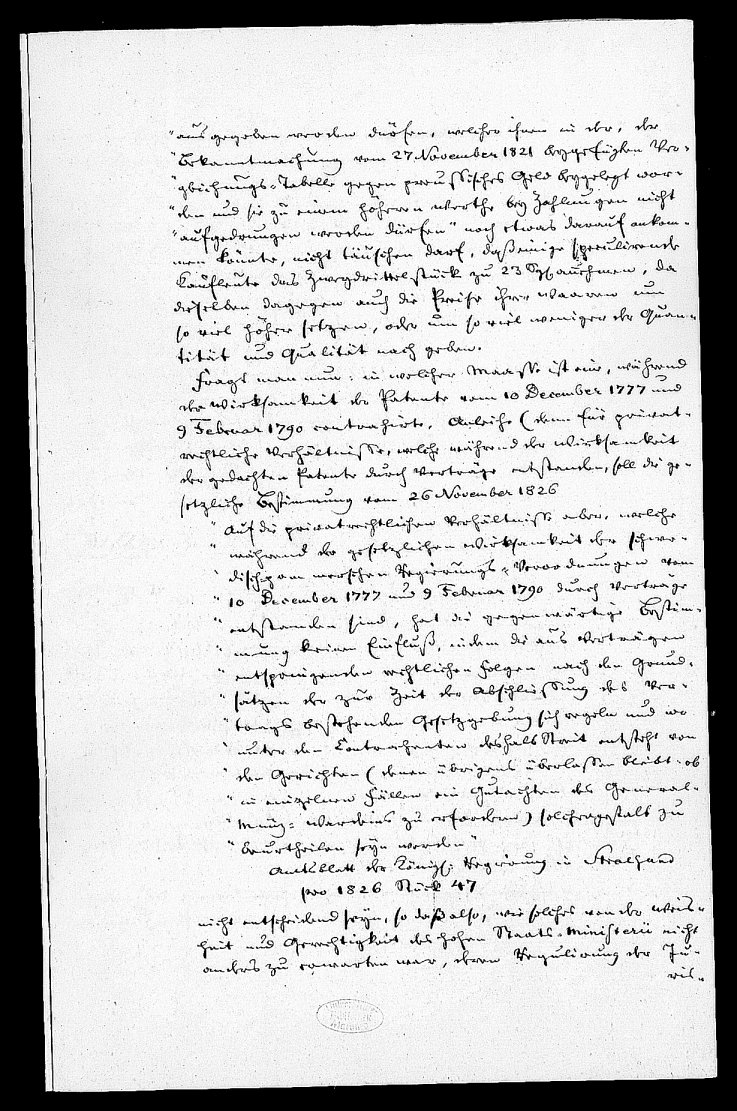 "ausgegeben werden dürfen, welcher ihnen in der, der
"Bekanntmachung vom 27 November 1821 beygefügten Ver-
"gleichungs-Tabelle gegen preussisches Geld beygelegt wor-
"den und sie zu einem höhern Werthe bey Zahlungen nicht
"aufgedrungen werden dürfen" noch etwas darauf ankom-
men könnte, nicht täuschen darf, daß einige speculirende
Kaufleute das Zweydrittelstück zu 23 Sgr annehmen, da
dieselben dagegen auch die Preise ihrer Waaren um
so viel höher setzen, oder um so viel weniger der Quan-
tität und Qualität nach geben.
Fragt man nun: in welcher Maasse ist eine, während
der Wirksamkeit der Patente vom 10 December 1777 und
9 Februar 1790 contrahirte, Anleihe (denn für privat-
rechtliche Verhältnisse, welche während der Wirksamkeit
der gedachten Patente durch Verträge entstanden, soll die ge-
setzliche Bestimmung vom 26 November 1826
"Auf die privatrechtlichen Verhältnisse aber, welche
"während der gesetzlichen Wirksamkeit der schwe-
"dischpommerschen Regierungs-Verordnungen vom
"10 December 1777 und 9 Februar 1790 durch Verträge
"entstanden sind, hat die gegenwärtige Bestim-
"mung keinen Einfluß, indem die aus Verträgen
"entspringenden rechtlichen Folgen nach den Grund-
"sätzen der zur Zeit der Abschliessung des Ver-
"trags bestehenden Gesetzgebung sich regeln und wo
"unter den Contrahenten deshalb Streit entsteht von
"den Gerichten (denen übrigens überlassen bleibt, ob
"in einzelnen Fällen ein Gutachten des General-
"Münz-Wardeins zu erfordern) solchergestalt zu
"beurtheilen seyn werden"
Amtsblatt der Königl. Regierung in Stralsund
pro 1826 Stück 47
nicht entscheidend seyn, so daß also, wie solches von der Weis-
heit und Gerechtigkeit des hohen Staats-Ministerii nicht
anders zu erwarten war, deren Regulirung der Ju-
ris-